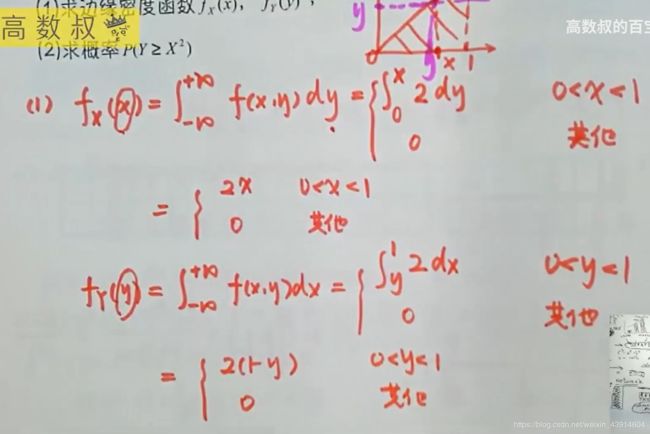 高数叔
高数叔的百宝
(1)求边缘密度函数 f_X(x), f_Y(y),
(2)求概率 P(Y ≥ X²)
y
0 y x 1
(1) f_X(x) = ∫_{-∞}^{+∞} f(x,y) dy = { ∫_0^x 2 dy 0<x<1
0 其他
= { 2x 0<x<1
0 其他
f_Y(y) = ∫_{-∞}^{+∞} f(x,y) dx = { ∫_y^1 2 dx 0<y<1
0 其他
= { 2(1-y) 0<y<1
0 其他
https://blog.csdn.net/weixin_43914604